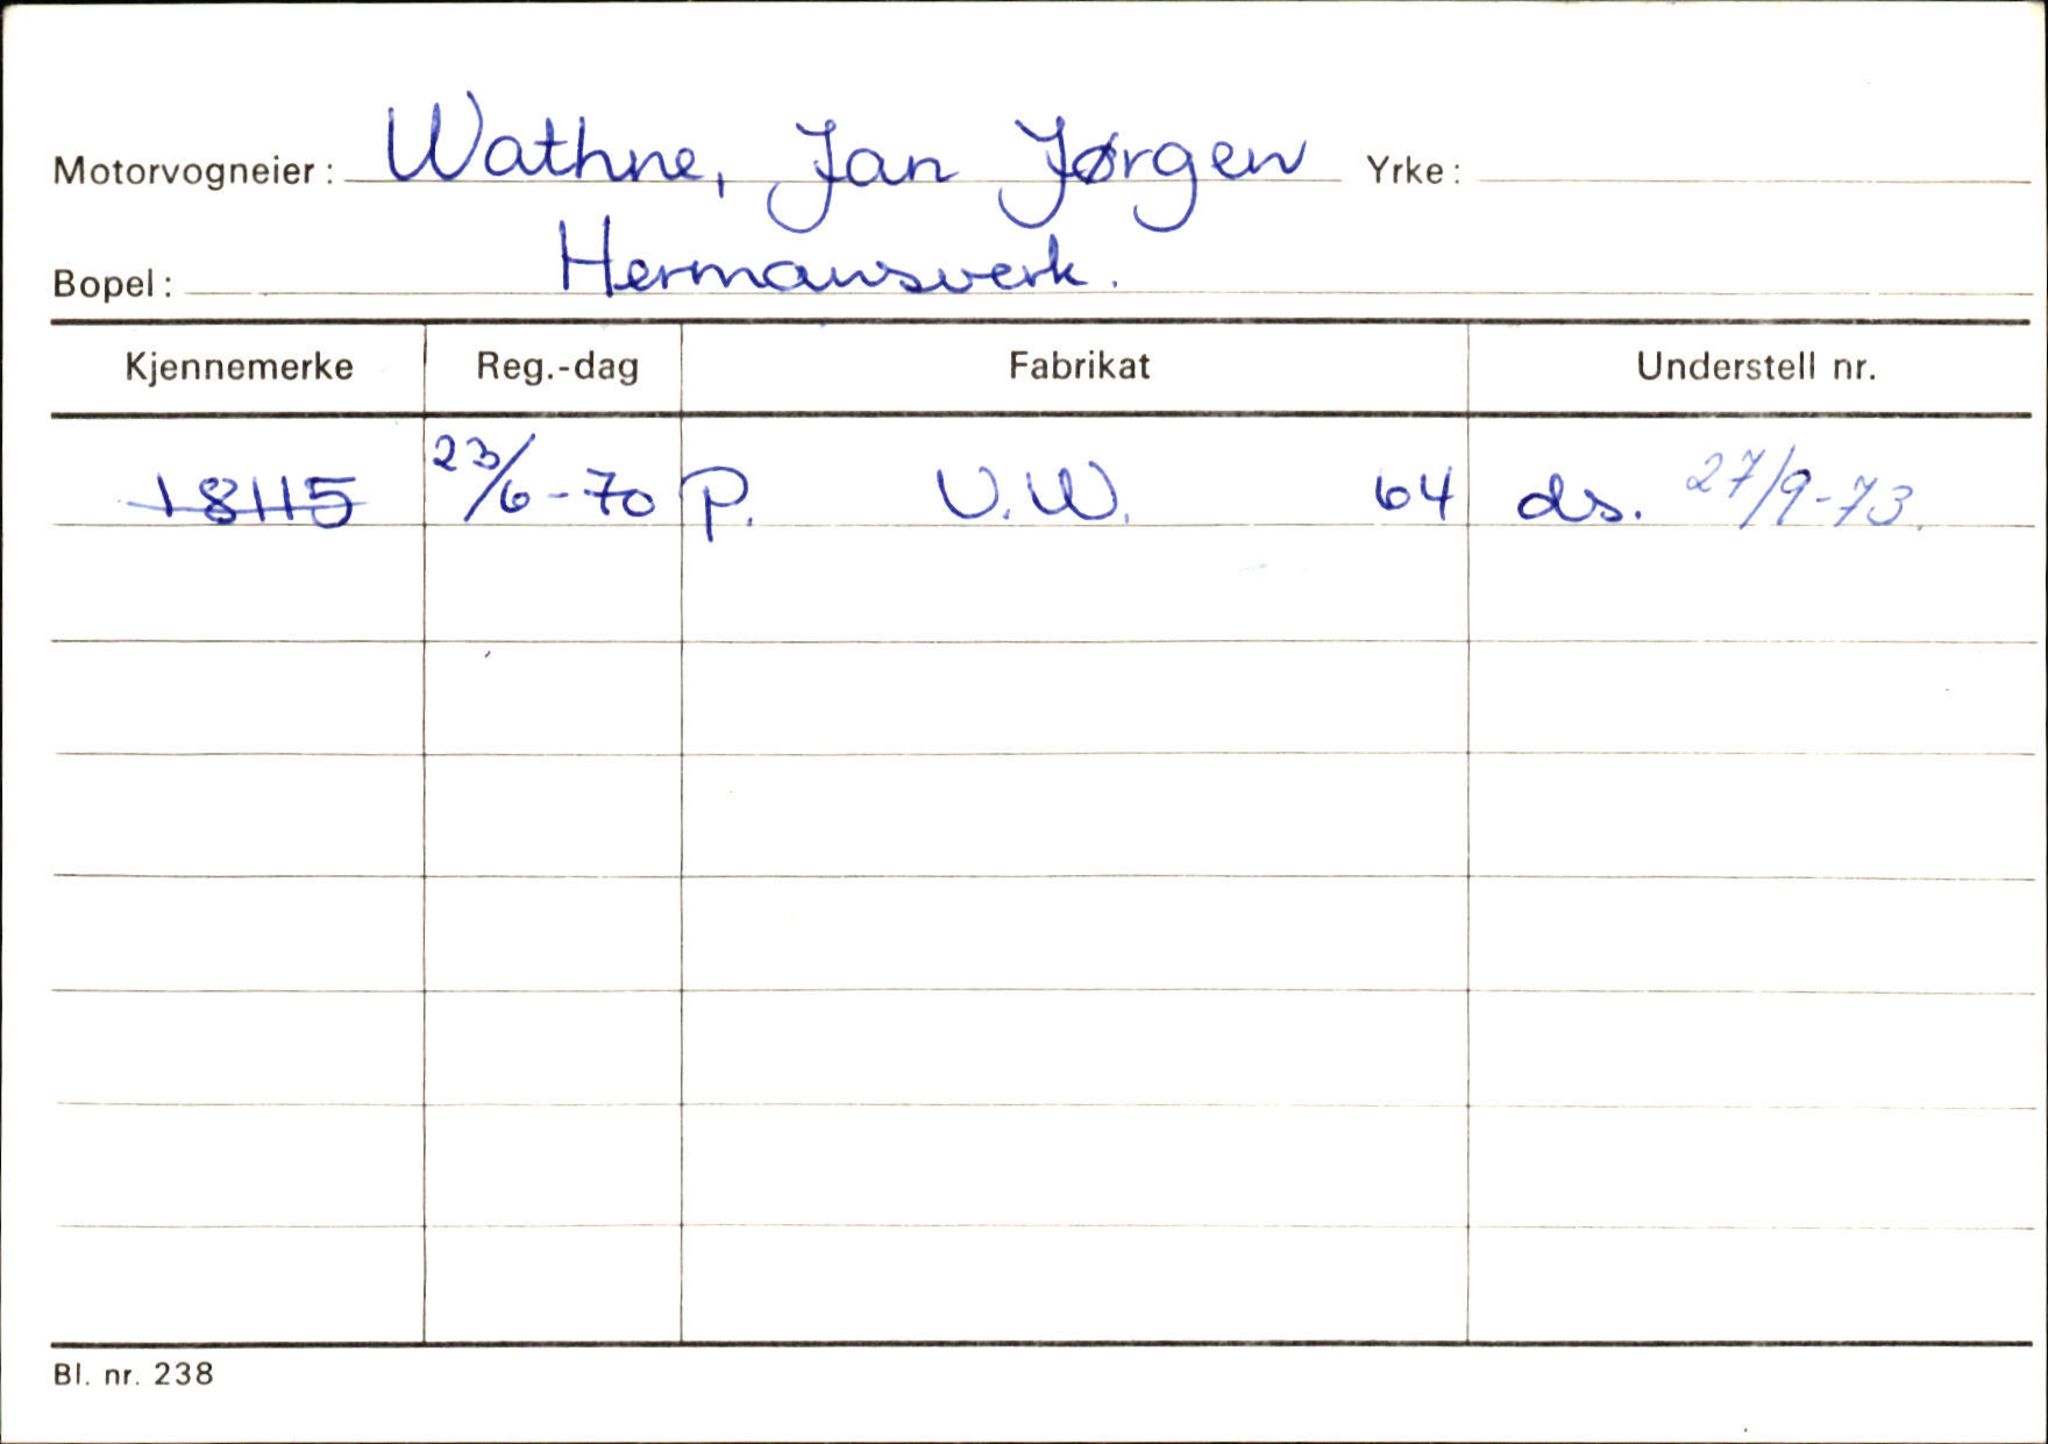 Motorvogneier: Wathne, Jan Jørgen Yrke:
Bopel: Hermansverk.
Kjennemerke Reg.-dag Fabrikat Understell nr.
18115 23/6-70 P. V.W. 64 ds. 27/9-73.
Bl. nr. 238